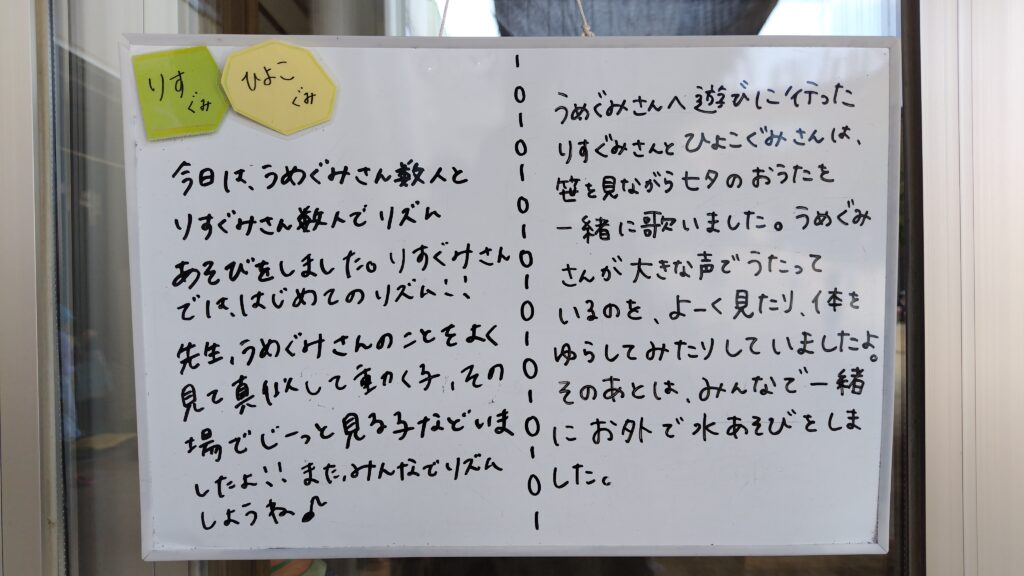 りす
ぐみ
ひよこ
ぐみ
今日は、うめぐみさん数人と
りすぐみさん数人でリズム
あそびをしました。りすぐみさん
では、はじめてのリズム!!
先生、うめぐみさんのことをよく
見て真似して動く子、その
場でじーっと見る子などいま
したよ!! また、みんなでリズム
しようね♪
うめぐみさんへ遊びに行った
りすぐみさんとひよこぐみさんは、
笹を見ながら七夕のおうたを
一緒に歌いました。うめぐみ
さんが大きな声でうたって
いるのを、よーく見たり、体を
ゆらしてみたりしていましたよ。
そのあとは、みんなで一緒
にお外で水あそびをしま
した。